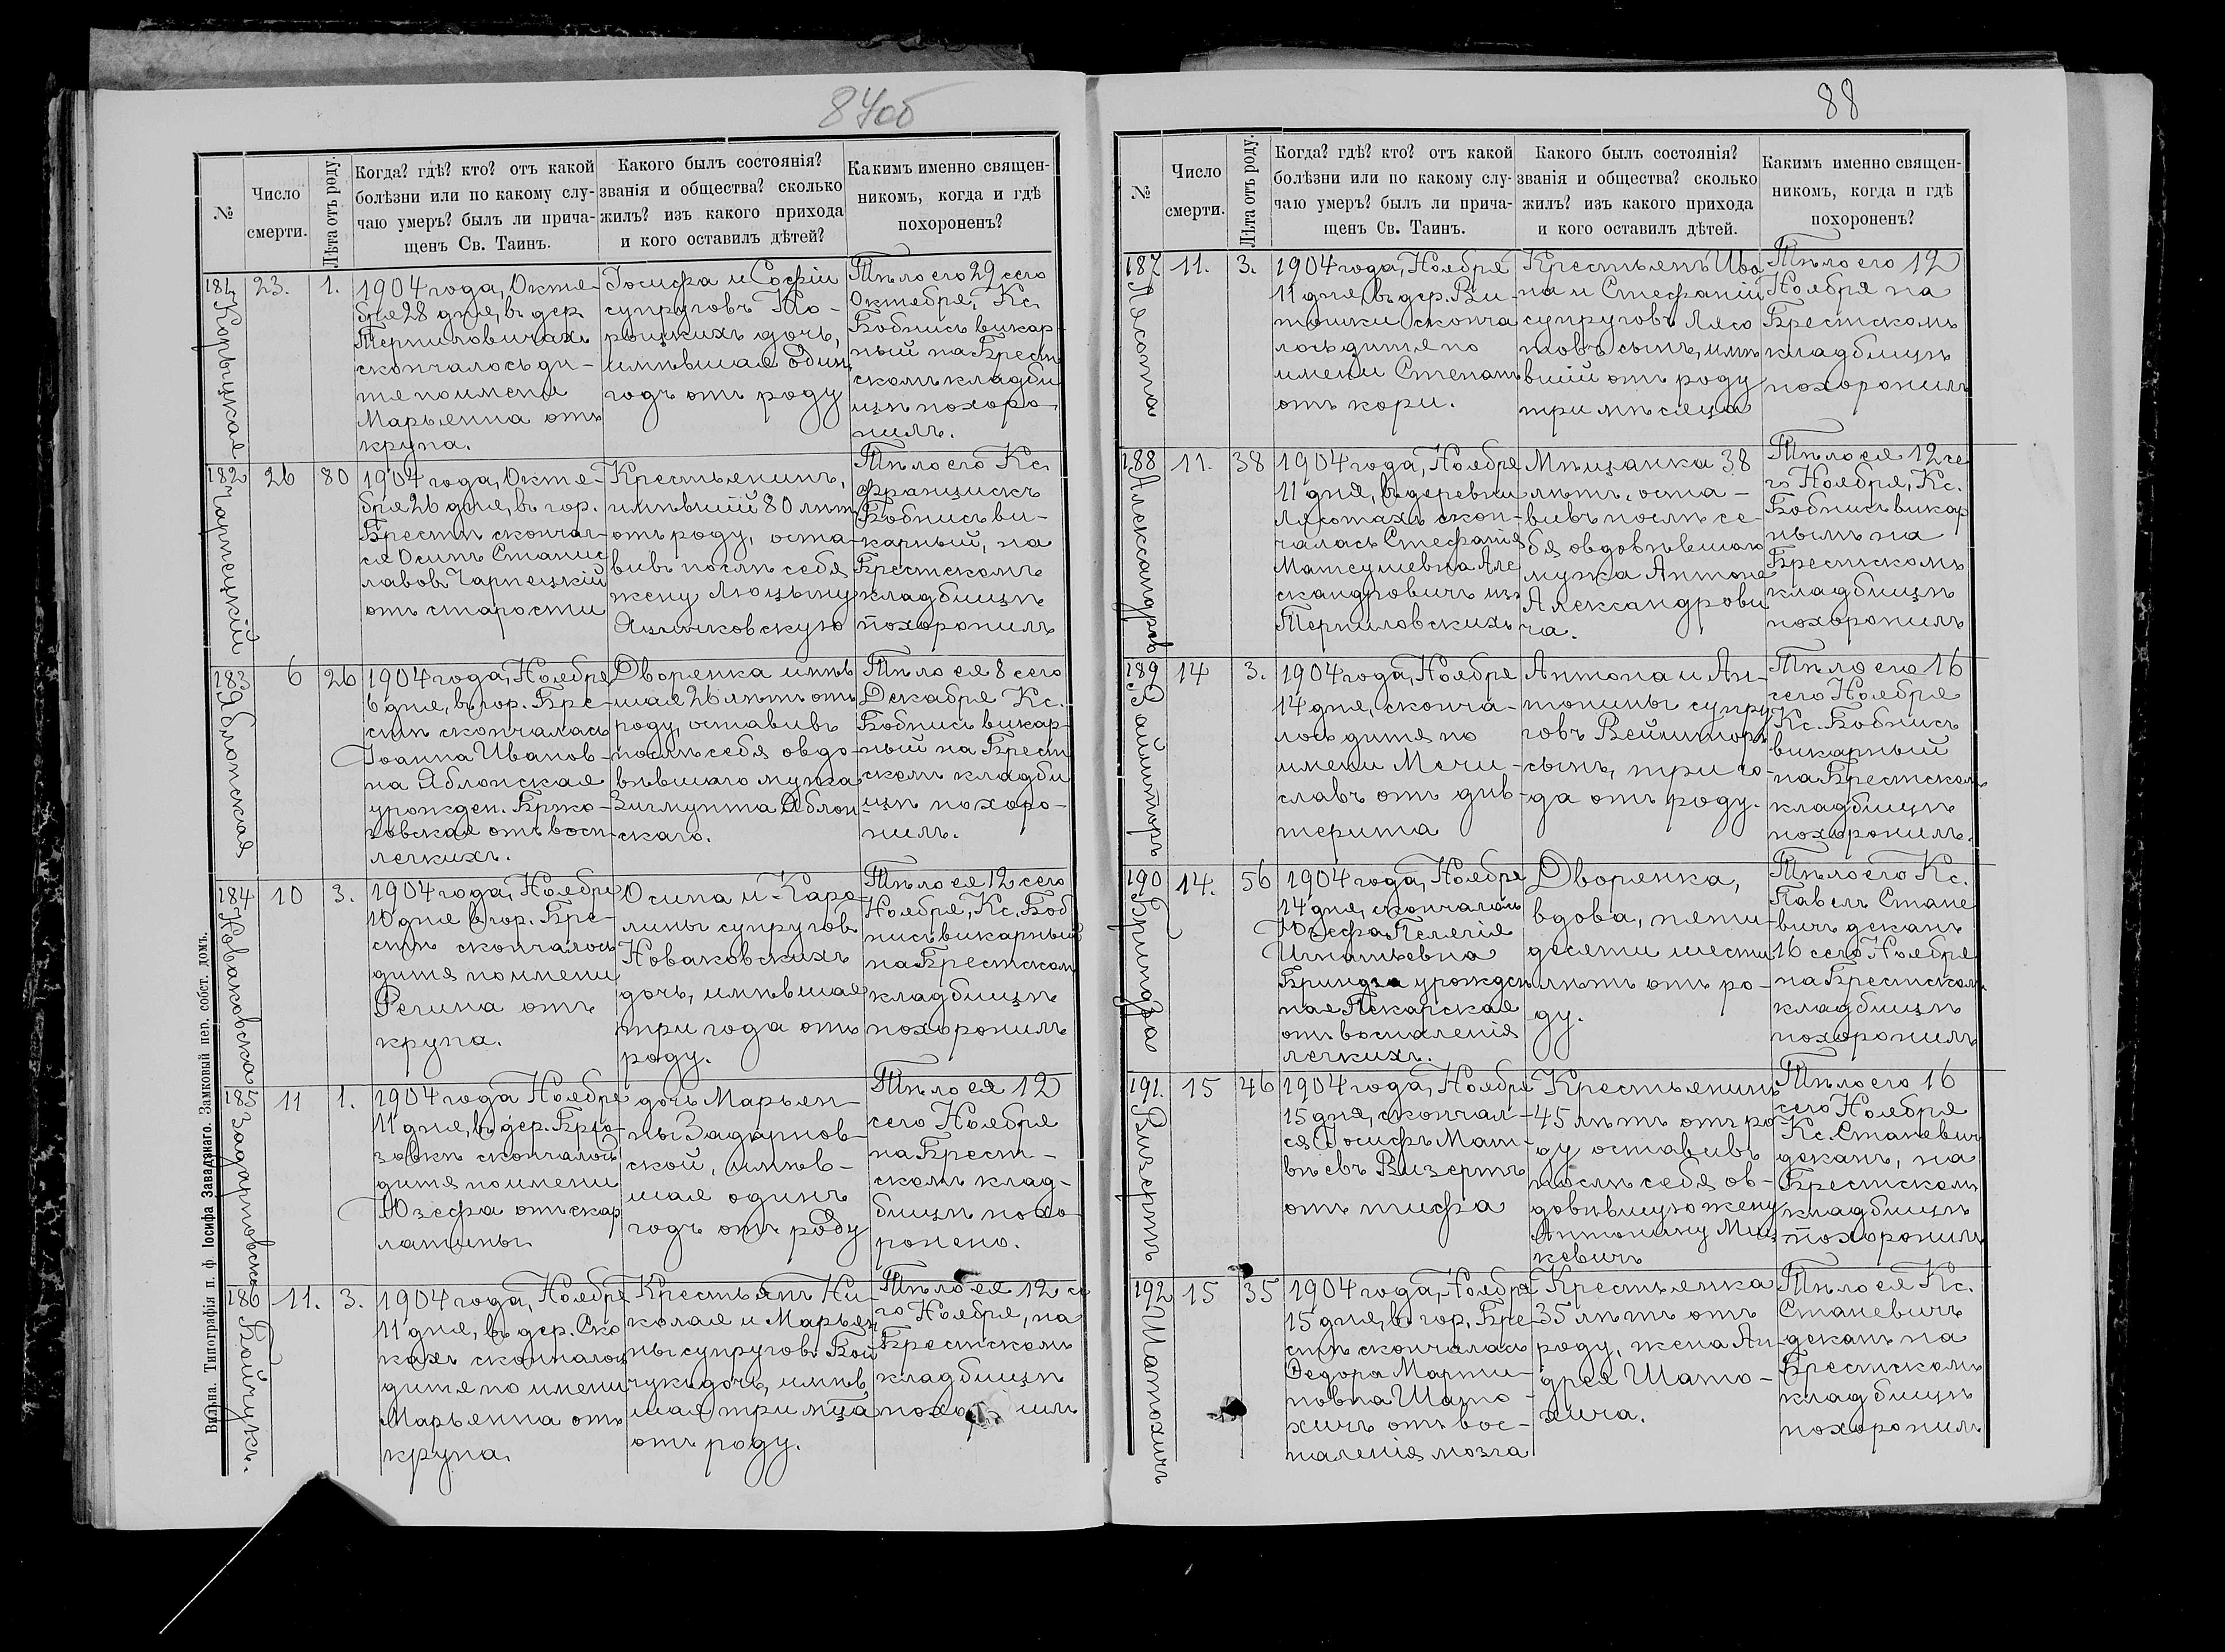 87об
№
Число
смерти.
Лѣта отъ роду.
Когда? гдѣ? кто? отъ какой
болѣзни или по какому слу-
чаю умеръ? былъ ли прича-
щенъ Св. Таинъ.
Какого былъ состоянія?
званія и общества? сколько
жилъ? изъ какого прихода
и кого оставилъ дѣтей?
Какимъ именно священ-
никомъ, когда и гдѣ
похороненъ?
181
23.
1.
1904 года, Октя-
бря 28 дня, въ дер.
Терпиловичахъ
скончалось ди-
тя по имени
Марьянна отъ
крупа.
Іосифа и Софіи
супруговъ
дочь,
имѣвшая один
годъ отъ роду
Тѣло его 29 сего
Октября, Кс.
Бобнисъ викар-
ный на Брест
скомъ кладби
щѣ похоро-
нилъ.
182
Чарнецкій
26
80
1904 года, Октя-
бря 26 дня, въ гор.
Брестѣ скончал-
ся Осипъ Станис
лавовъ Чарнецкій
отъ старости
Крестьянинъ,
имѣвшій 80 лѣтъ
отъ роду, оста-
вивъ послѣ себя
жену Люцыну
Яцынковскую
Тѣло его Кс.
Францискъ
Бобнисъ ви-
карный, на
Брестскомъ
кладбищѣ
похоронилъ
183
Яблонская
6
26
1904 года, Ноября
6 дня, въ гор. Бре-
стѣ скончалась
Іоанна Иванов-
на Яблонская
урожден. Бржо-
зовская отъ восп.
легкихъ.
Дворянка имѣв
шая 26 лѣтъ отъ
роду, оставивъ
послѣ себя овдо-
вѣвшаго мужа
Зигмунта Яблон
скаго.
Тѣло ея 8 сего
Декабря Кс.
Бобнисъ викар-
ный на Брест
скомъ кладби
щѣ похоро-
нилъ.
184
Новаковская
10
3.
1904 года, Ноября
10 дня в гор. Бре-
стѣ скончалось
дитя по имени
Регина отъ
крупа.
Осипа и Каро-
лины супругов
Новаковскихъ
дочь, имѣвшая
три года отъ
роду.
Тѣло ея 12 сего
Ноября, Кс. Боб
нисъ викарный
на Брестском
кладбищѣ
похоронилъ
185
Задарновская
11
1.
1904 года Ноября
11 дня, въ дер. Брео-
зовкѣ скончалось
дитя по имени
Юзефа отъ скар
латины
дочь Марьян-
ны Задарнов-
ской, имѣв-
шая одинъ
годъ отъ роду
Тѣло ея 12
сего Ноября
на Брест-
скомъ клад-
бищѣ похо
ронено.
186
Бойчукъ.
11.
3.
1904 года, Ноября
11 дня, въ дер. Ско
кахъ скончалось
дитя по имени
Марьянна отъ
крупа.
Крестьянъ Ни-
колая и Марьян
ны супругов. Бой
чукъ дочь, имѣв
шая три мца
отъ роду.
Тѣло ея 12 се
го Ноября, на
Брестскомъ
кладбищѣ
Вильна. Типографія п. ф. Іосифа Завадзкаго. Замковый пер. собст. домъ.
88
№
Число
смерти.
Лѣта отъ роду.
Когда? гдѣ? кто? отъ какой
болѣзни или по какому слу-
чаю умеръ? былъ ли прича-
щенъ Св. Таинъ.
Какого былъ состоянія?
званія и общества? сколько
жилъ? изъ какого прихода
и кого оставилъ дѣтей.
Какимъ именно священ-
никомъ, когда и гдѣ
похороненъ?
187
Лясота
11.
3.
1904 года, Ноября
11 дня, въ дер. Ви-
тошки сконча
лось дитя по
имени Степанъ
отъ кори.
Крестьянъ Ива
на и Стефаніи
супруговъ Лясо
товъ сынъ, имѣ
вшій отъ роду
три мѣсяца
Тѣло его 12
Ноября на
Брестскомъ
кладбищѣ
похоронилъ
188
Александров
11.
38
1904 года, Ноября
11 дня, въ деревни
Лясотахъ скон-
чалась Стефанія
Матеушевна Але
скандровичъ изъ
Терпиловскихъ
Мѣщанка 38
лѣтъ, оста-
вивъ послѣ се-
бя овдовѣвшаго
мужа Антона
Александрови
ча.
Тѣло ея 12 се
го Ноября, Кс.
Бобнисъ викар
нымъ на
Брестскомъ
кладбищѣ
похоронилъ
189
14
3.
1904 года, Ноября
14 дня, сконча-
лось дитя по
имени Мечи-
славъ от диф-
терита
Антона и Ан-
тонины супру
говъ Вейтморъ
сынъ, три го-
да отъ роду.
Тѣло его 16
сего Ноября
Кс. Бобнисъ
викарный
на Брестском
кладбищѣ
похоронилъ.
190
Бриндза
14.
56
1904 года, Ноября
14 дня, скончалась
Юзефа Пелагія
Игнатьевна
Бриндза урожден
ная Пекарская
отъ воспаленія
легкихъ.
Дворянка,
вдова, пяти-
десяти шести
лѣтъ отъ ро-
ду.
Тѣло его Кс.
Павелъ Стане
вичъ деканъ
16 сего Ноября
на Брестскомъ
кладбищѣ
похоронилъ
191.
Визертъ
15
46
1904 года, Ноября
15 дня, скончал-
ся Іосифъ Мат-
вѣевъ Визертъ
отъ тифа
Крестьянинъ
45 лѣтъ отъ ро
ду оставивъ
послѣ себя ов-
довѣвшую жену
Антонину Миц
кевичъ
Тѣло его 16
сего Ноября
Кс. Станевичъ
деканъ, на
Брестскомъ
кладбищѣ
похоронилъ
192
Шатохичъ
15
35
1904 года, Ноября
15 дня, въ гор. Бре-
стѣ скончалась
Ѳедора Марти-
новна Шато-
хичъ отъ вос-
паленія мозга
Крестьянка
35 лѣтъ отъ
роду, жена Ан-
дрея Шато-
хича.
Тѣло ея Кс.
Станевичъ
деканъ на
Брестскомъ
кладбищѣ
похоронилъ